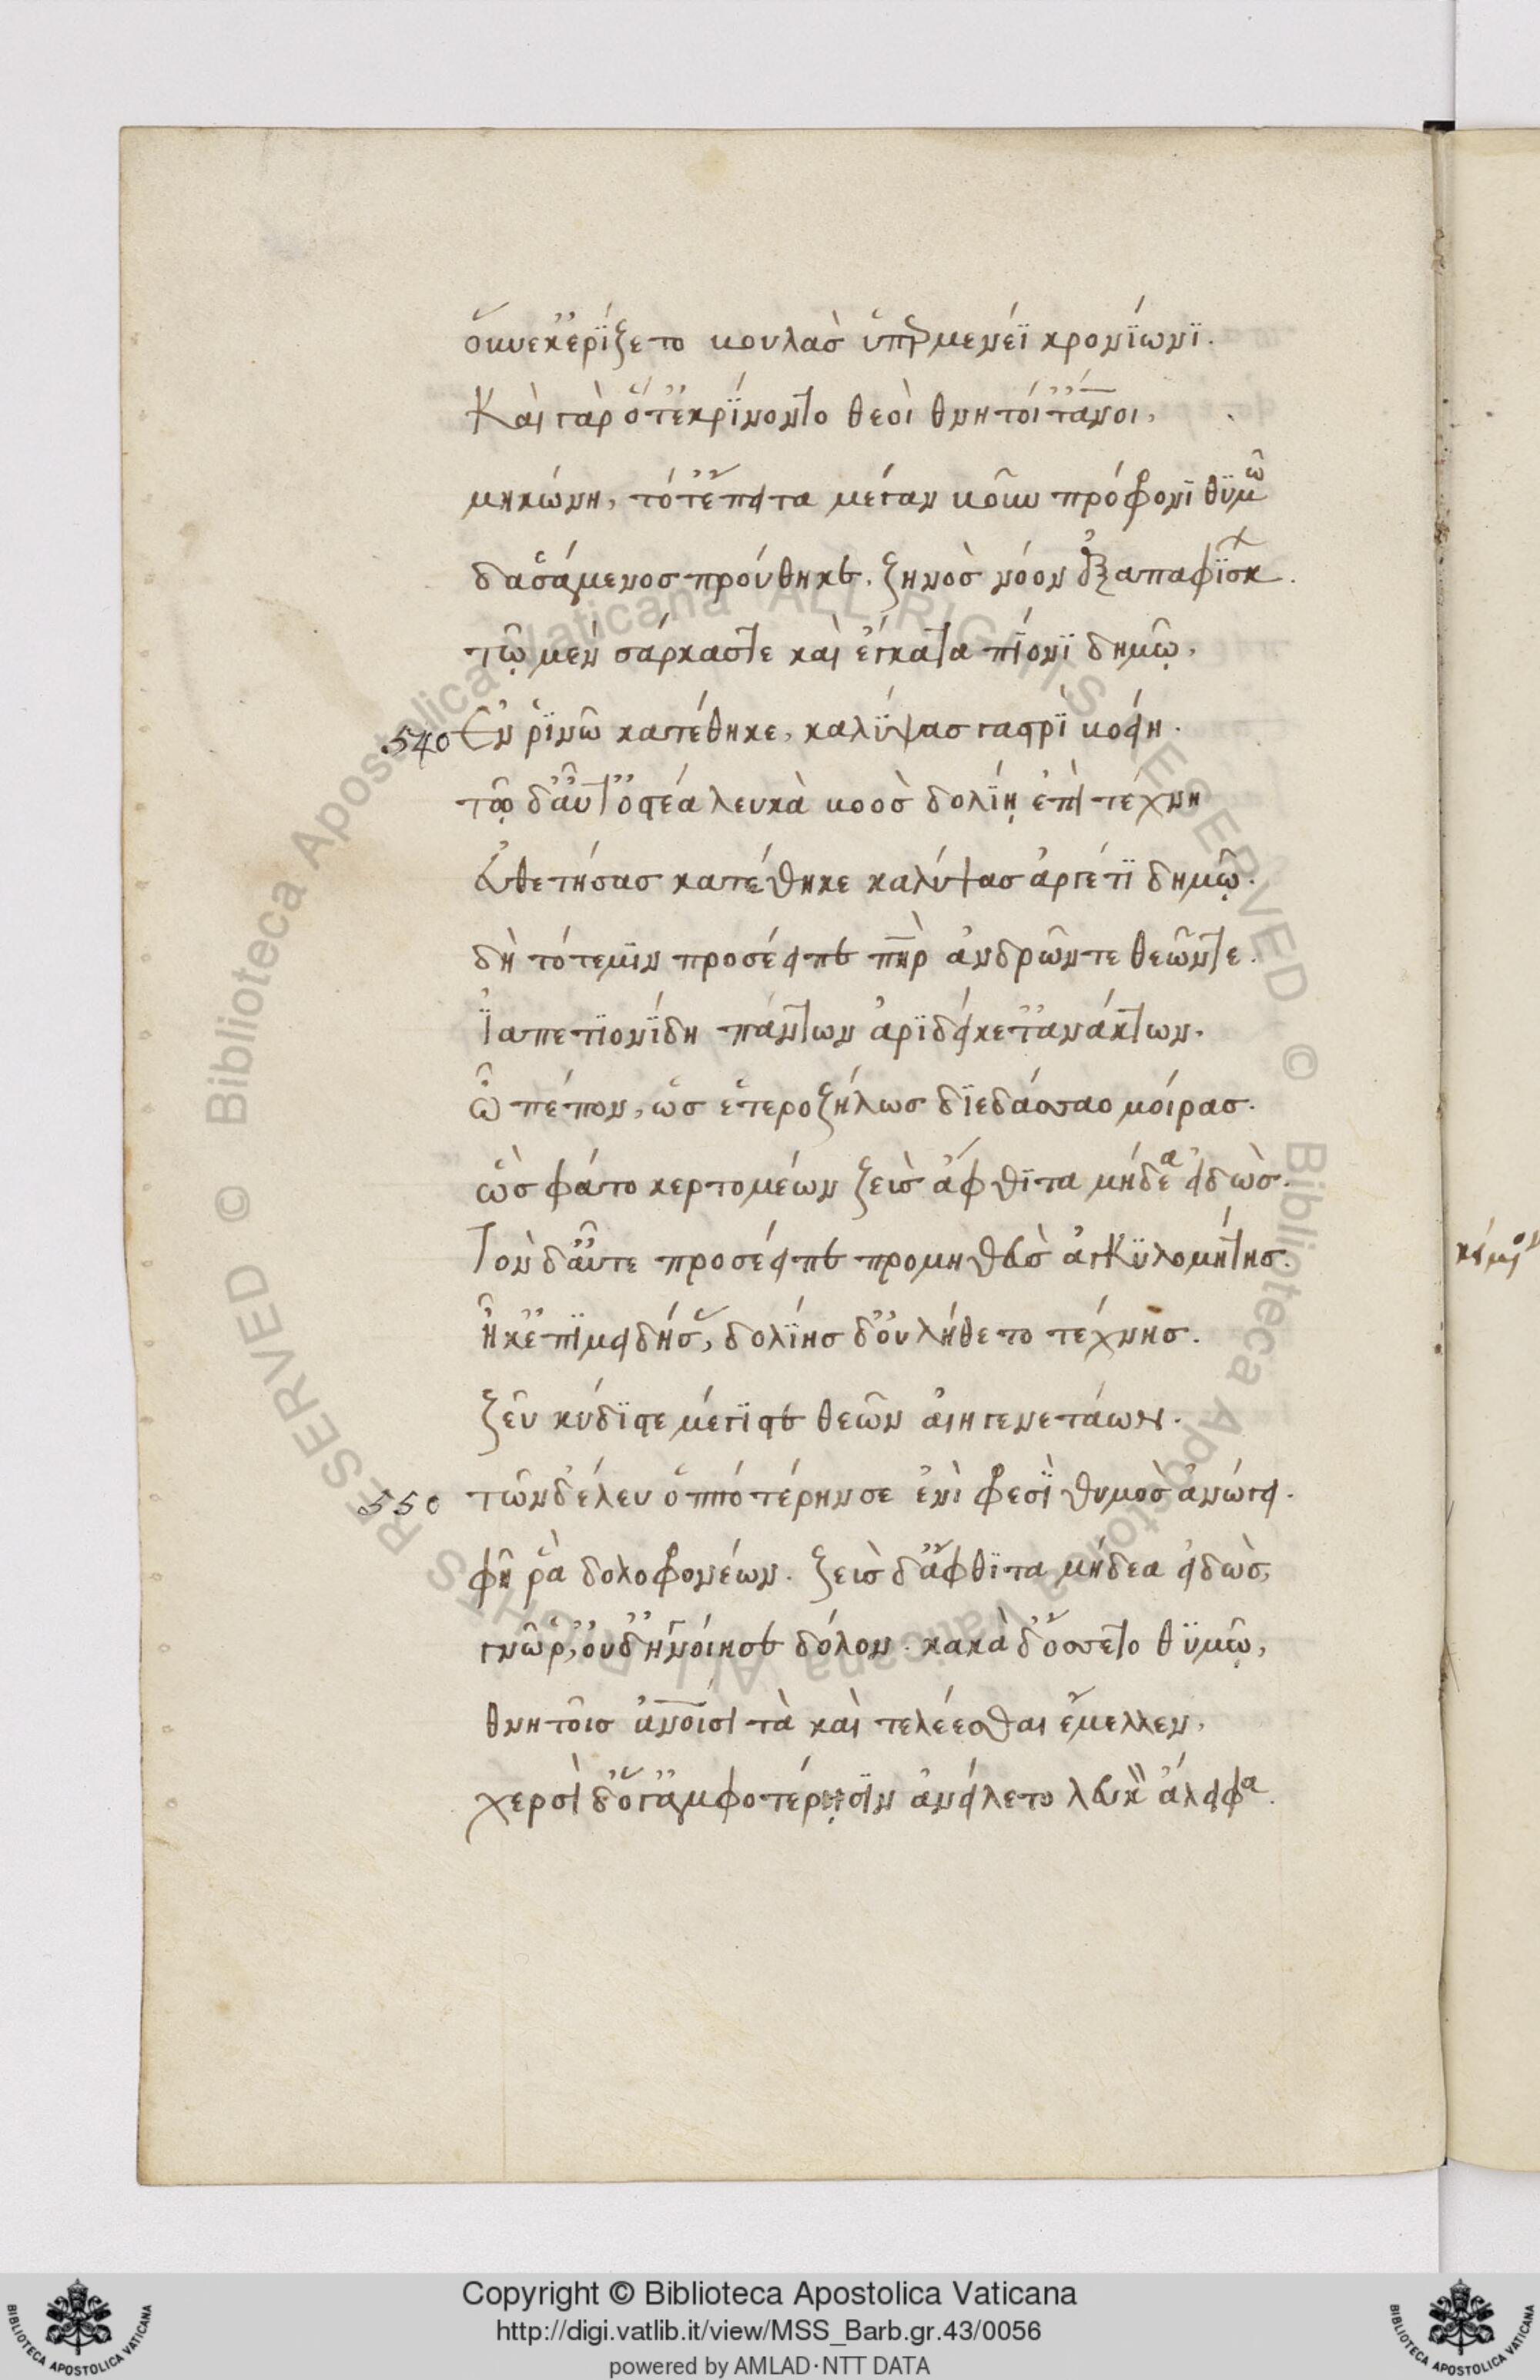 οὕνεκ' ἐρίζετο βουλὰς ὑπερμενέϊ κρονίωνι.
Καὶ γὰρ ὅτ' ἐκρίνοντο θεοὶ θνητοί τ' ἄνοι,
μηκώνη, τότ' ἔπειτα μέγαν βοῦν πρόφρονι θυμῶ
δασάμενος προύθηκε, ζηνὸς νόον ἐξαπαφίσκων.
τῶ μὲν σάρκας τε καὶ ἔγκατα πίονι δημῶ,
540 Ἐν ῥινῶ κατέθηκε, καλύψας γαστρὶ βοείη.
τῶ δ' αὖτ' ὀστέα λευκὰ βοὸς δολίη ἐπὶ τέχνη
εὐθετήσας κατέθηκε καλύψας ἀργέτι δημῶ.
δὴ τότε μιν προσέειπε πηρ ἀνδρῶν τε θεῶν τε.
Ἰαπετιονίδη πάντων ἀριδείκετ' ἀνάκτων,
ὦ πέπον, ὡς ἑτεροζήλως διεδάσσαο μοίρας.
ὣς φάτο κερτομέων ζεὺς ἄφθιτα μήδεα εἰδώς.
Τὸν δ' αὖτε προσέειπε προμηθεὺς ἀγκυλομήτης.
ἦκ' ἐπιμειδήσας, δολίης δ' οὐ λήθετο τέχνης.
ζεῦ κύδιστε μέγιστε θεῶν αἰηγενετάων.
550 τῶν δ' ἕλευ ὁπποτέρην σε ἐνὶ φρεσὶ θυμὸς ἀνώγει.
φῆ ῥὰ δολοφρονέων. ζεὺς δ' ἄφθιτα μήδεα εἰδὼς,
γνῶ ῥ', οὐδ' ἠγνοίησε δόλον. κακὰ δ' ὄσσετο θυμῶ,
θνητοῖς ἀνοισι τὰ καὶ τελέεσθαι ἔμελλεν,
χερσὶ δ' ὅγ' ἀμφοτέρησιν ἀνείλετο λευκὸν ἄλειφα.
Copyright © Biblioteca Apostolica Vaticana
http://digi.vatlib.it/view/MSS_Barb.gr.43/0056
powered by AMLAD·NTT DATA